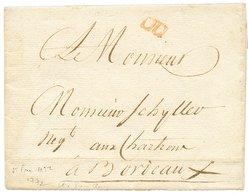 A Monsieur
Monsieur Schyller
Negt aux Chartrons
à Bordeaux